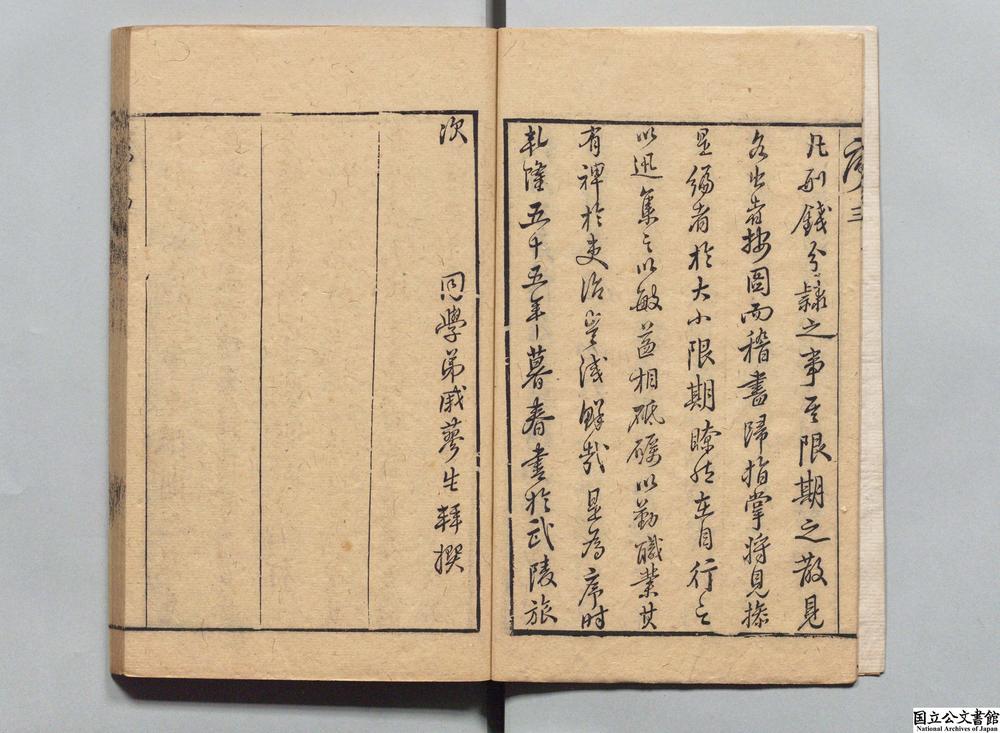 序 三
凡刑錢分隸之事至限期之散見
各出者按圖而稽書歸指掌將見操
是編者於大小限期瞭然在目行之
以迅集之以敏益相砥礪以勤職業其
有裨於吏治豈淺鮮哉是為序時
乹隆五十五年暮春書於武陵旅
次
同學弟戚蓼生拜撰
国立公文書館
National Archives of Japan